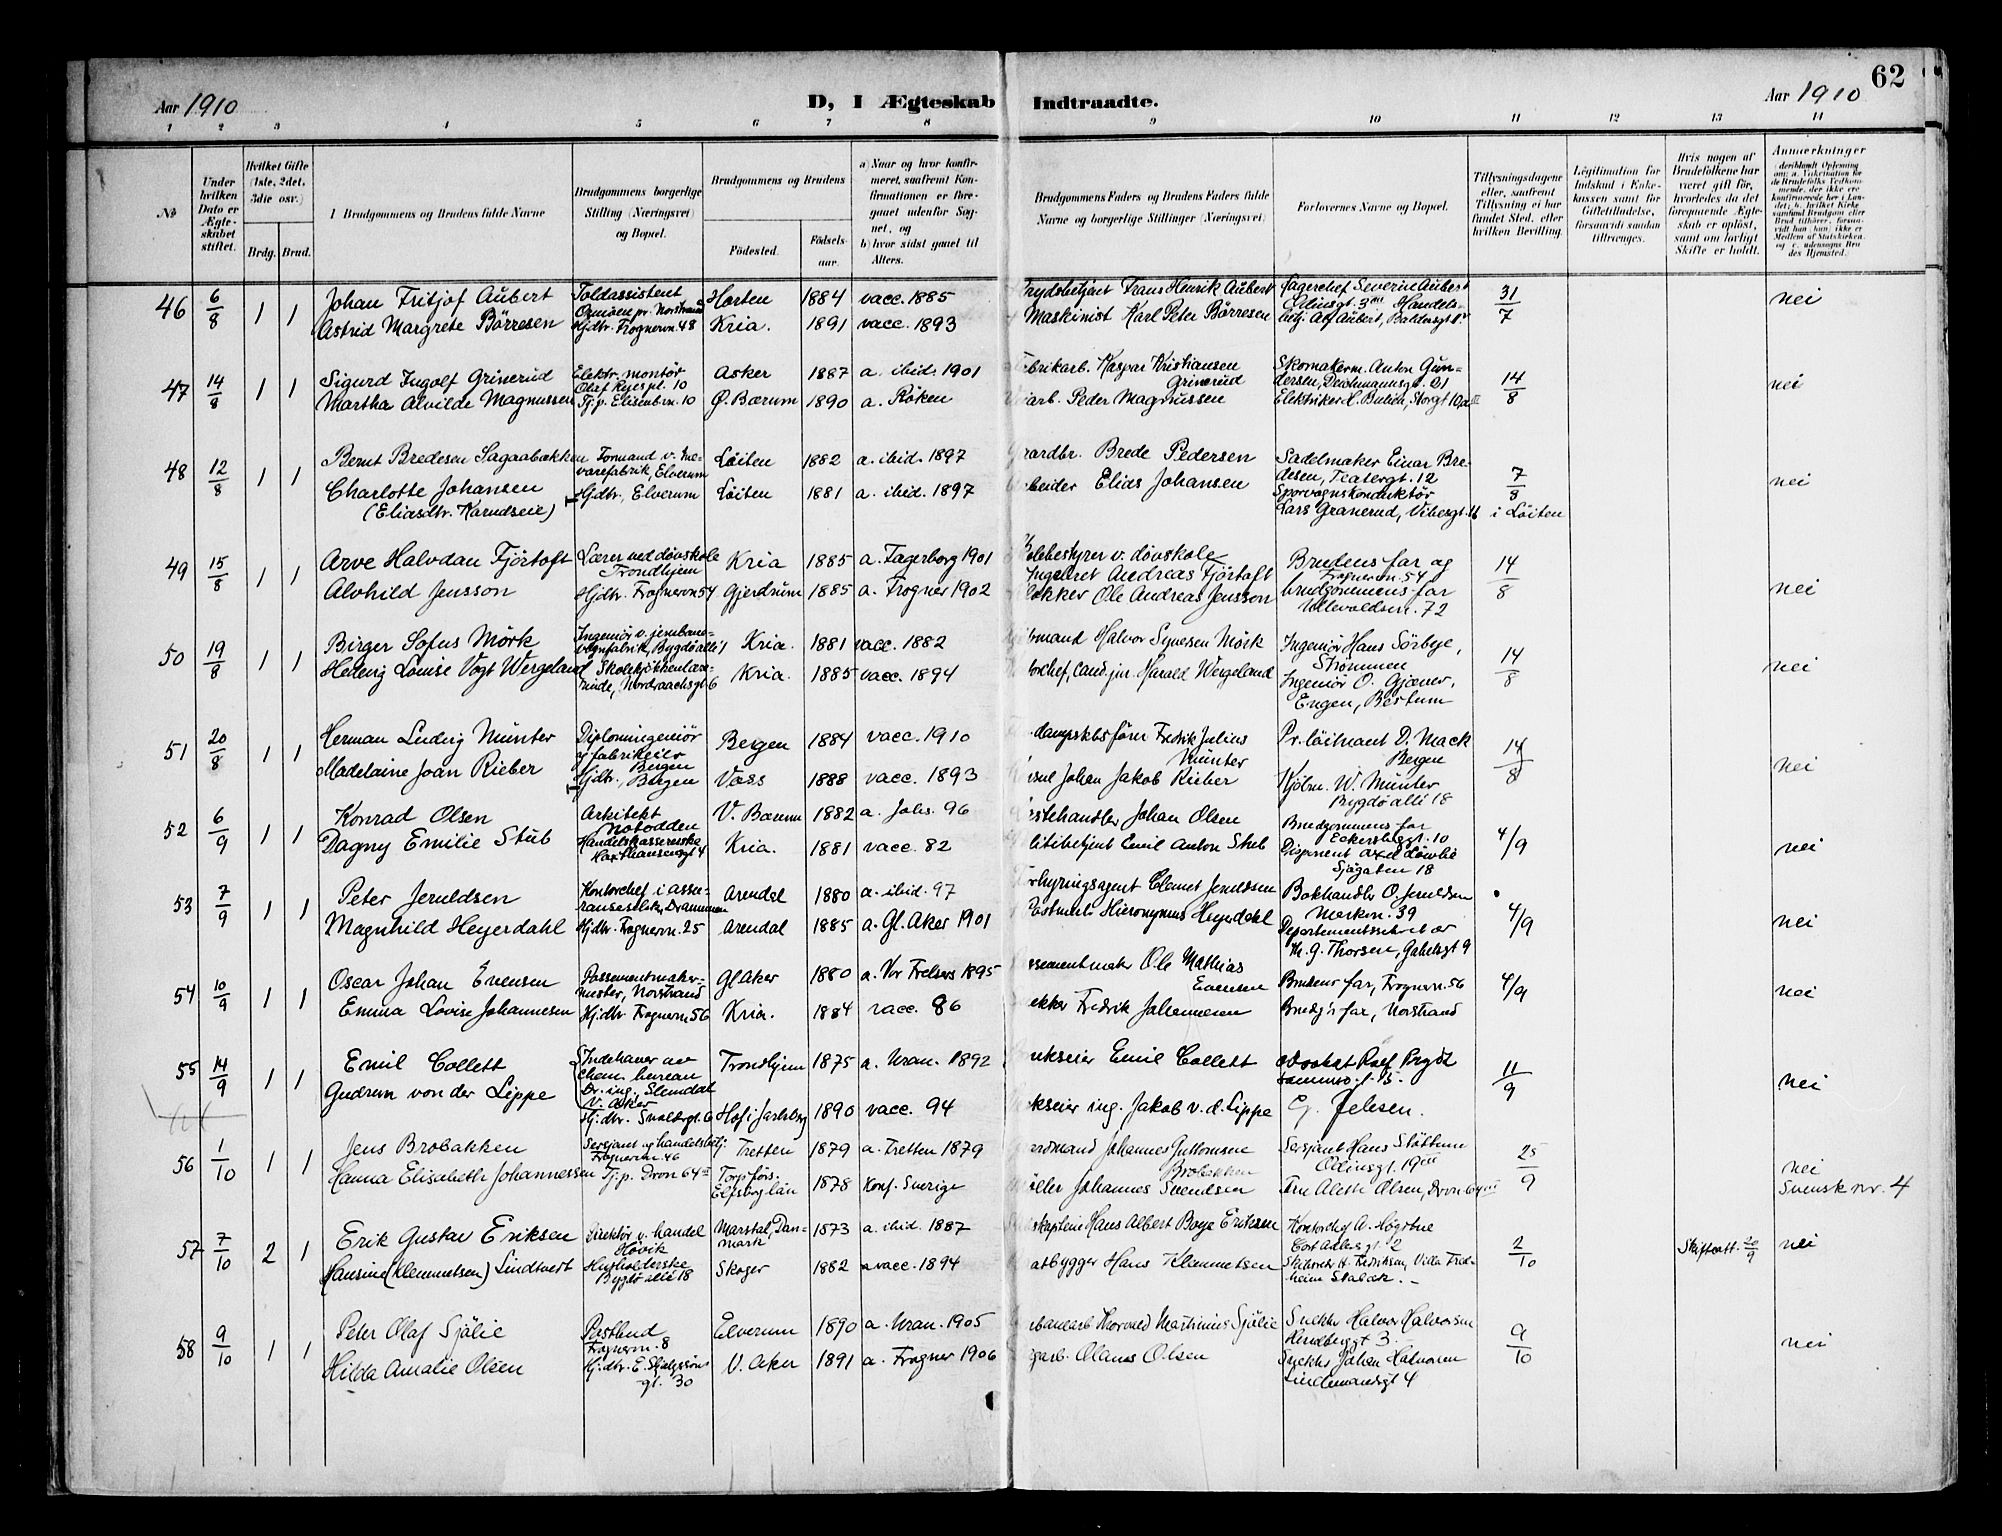 62
Aar 1910
D, I Ægteskab Indtraadte.
Aar 1910
1 2 3 4 5 6 7 8 9 10 11 12 13 14
No.
Under hvilken Dato er Ægteskabet stiftet.
Hvilket Gifte (1ste, 2det, 3die osv.)
Brdg. Brud.
I Brudgommens og Brudens fulde Navne
Brudgommens borgerlige Stilling (Næringsvei) og Bopæl.
Brudgommens og Brudens
Födested.
Födselsaar.
a) Naar og hvor konfirmeret, saafremt Konfirmationen er foregaaet udenfor Sognet, og
b) hvor sidst gaaet til Alters.
Brudgommens Faders og Brudens Faders fulde Navne og borgerlige Stillinger (Næringsvei)
Forlovernes Navne og Bopæl.
Tillysningsdagene eller, saafremt Tillysning ei har fundet Sted, efter hvilken Bevilling.
Legitimation for Indskud i Enkekassen samt for Giftetilladelse, forsaavidt saadan tiltrænges.
Hvis nogen af Brudefolkene har været gift før, hvorledes da det foregaaende Ægteskab er oplöst, samt om lovligt Skifte er holdt.
Anmærkninger
46 6/8 1 1 Johan Fritjof Aubert Toldassistent Horten 1884 vacc. 1885 Frans Henrik Aubert Lagerchef Severin Aubert 31/7 nei
Astrid Margrete Börresen Hjdtr. Frognervn. 48 Kria. 1891 vacc. 1893 Maskinist Karl Peter Börresen
47 14/8 1 1 Sigurd Ingolf Grinerud Elektr. montör Asker 1887 a. ibid. 1901 Kaspar Kristiansen Grinerud Skomakerm. Anton Gundersen, Deichmannsgt. 21 14/8 nei
Olaf Ryes pl. 10
Martha Alvilde Magnussen Tj.p. Elisenbrn. 10 Ö. Bærum 1890 a. Röken Peder Magnussen Elektriker H. Bulien, Storgt 10
48 12/8 1 1 Bernt Bredesen Sagaabækken Formand v. Elverum Löiten 1882 a. ibid. 1897 Brede Pedersen Sadelmaker Einar Bredesen, Teatergt. 12 7/8 nei
Charlotte Johansen Hjdtr., Elverum Löiten 1881 a. ibid. 1897 Elias Johansen Sporvognskonduktör
(Eliasdtr. Karudseie) Lars Granerud, Vibesgt. 16 i Löiten
49 15/8 1 1 Arve Halvdan Fjörtoft Lærer ved dövskole Trondhjem Kria 1885 a. Fagerborg 1901 Skolebestyrer v. dövskole Ingebret Andreas Fjörtoft Brudens far og Frognervn. 54 14/8 nei
Alvhild Jensson Hjdtr. Frognervn 54 Gjerdrum 1885 a. Frogner 1902 Klokker Ole Andreas Jensson brudgommens far Ullevoldsvn. 72
50 19/8 1 1 Birger Sofus Mörk Ingeniör v. jernbanevognfabrik, Bygdö allé 1 Kria. 1881 vacc. 1882 Halvor Synesen Mörk Ingeniör Hans Sörbye, Strömmen 14/8 nei
Hedvig Louise Vogt Wergeland Skolekjökkenlærerinde, Nordraachsgt 6 Kria. 1885 vacc. 1894 cand. jur. Harald Wergeland Ingeniör O. Gjæver, Engen, Bestum
51 20/8 1 1 Herman Ludvig Münter Diplomingeniör og fabrikeier Bergen Bergen 1884 vacc. 1910 dampskibsförer Fredrik Julius Münter Pr. löitnant D. Mack Bergen 14/8 nei
Madelaine Joan Rieber Hjdtr. Bergen Voss 1888 vacc. 1893 Johan Jakob Rieber Kjöbm. W. Münter Bygdö allé 18
52 6/9 1 1 Konrad Olsen Arkitekt Notodden V. Bærum 1882 a. Johs. 96 Hestehandler Johan Olsen Brudgommens far Eckersbggt. 10 4/9 nei
Dagny Emilie Stub Handelskassererske Haxthausensgt 4 Kria. 1881 vacc. 82 Politibetjent Emil Anton Stub Disponent Axel Sjögaten 18
53 7/9 1 1 Peter Jeruldsen Kontorchef i assuranseselsk, Drammen Arendal 1880 a. ibid. 97 Forhyringsagent Clemet Jeruldsen Bokhandler O. Jeruldsen Markvn. 39 4/9 nei
Magnhild Heyerdahl Hjdtr. Frognervn. 25 Arendal 1885 a. Gl. Aker 1901 Hieronymus Heyerdahl Departementssekretær M. G. Thorsen, Gabelsgt 9
54 10/9 1 1 Oscar Johan Evensen Possementmakermester, Norstrand Gl Aker 1880 a. Vor Frelsers 1895 Ole Mathias Evensen Brudens far, Frognervn. 56 4/9 nei
Emma Lovise Johannesen Hjdtr. Frognervn 56 Kria. 1884 vacc. 86 Fredrik Johannesen Brudg's far, Norstrand
55 14/9 1 1 Emil Collett Indehaver av chem. bureau Dr. ing. Slemdal V. Aker Trondhjem 1875 a. Uran. 1892 Brukseier Emil Collett Advokat Rolf Brydt 11/9 nei
Gudrun von der Lippe Hjdtr. 6 Hof i Jarlsberg 1890 vacc. 94 Brukseier ing. Jakob v. d. Lippe G. Jebsen.
56 1/10 1 1 Jens Brobakken Sersjant og handelsbetj. Frognervn 46 Tretten 1879 a. Tretten 1879 Gaardmand Johannes Guttormsen Brobakken Sersjant Hans Slöttum Odinsgt. 19 III 25/9 nei
Hanna Elisabeth Johannessen Tj.p. Dron 64 Torp förs. Elfsborg län 1878 Konf. Sverige Möller Johannes Svendsen Fru Alette Olsen, Dron 64 Svensk nr. 4
57 7/10 2 1 Erik Gustav Eriksen Direktör v. handel Hövik Marstal, Danmark 1873 a. ibid. 1887 Skibskaptein Hans Albert Boye Eriksen Kontorchef A. Höystue Cort Adelersgt. 2 2/10 Skifteatt. 20/9 nei
Hansine (Klemmetsen) Lindtvert Husholderske Bygdö allé 18 Skoger 1882 vacc. 1894 Hans Klemmetsen H. Fredriksen, Villa Fredheim Stabæk.
58 9/10 1 1 Peter Olaf Sjölie Postbud Frognervn. 8 Elverum 1890 a. Uran. 1905 Thorvald Martinius Sjölie Snekker Halvor Halvorsen 3 9/10 nei
Hilda Amalie Olsen Hjdtr. E. Skjelgssöns gt. 30 V. Aker 1891 a. Frogner 1906 Olaus Olsen Snekker Johan Halvorsen Lindemansgt 4